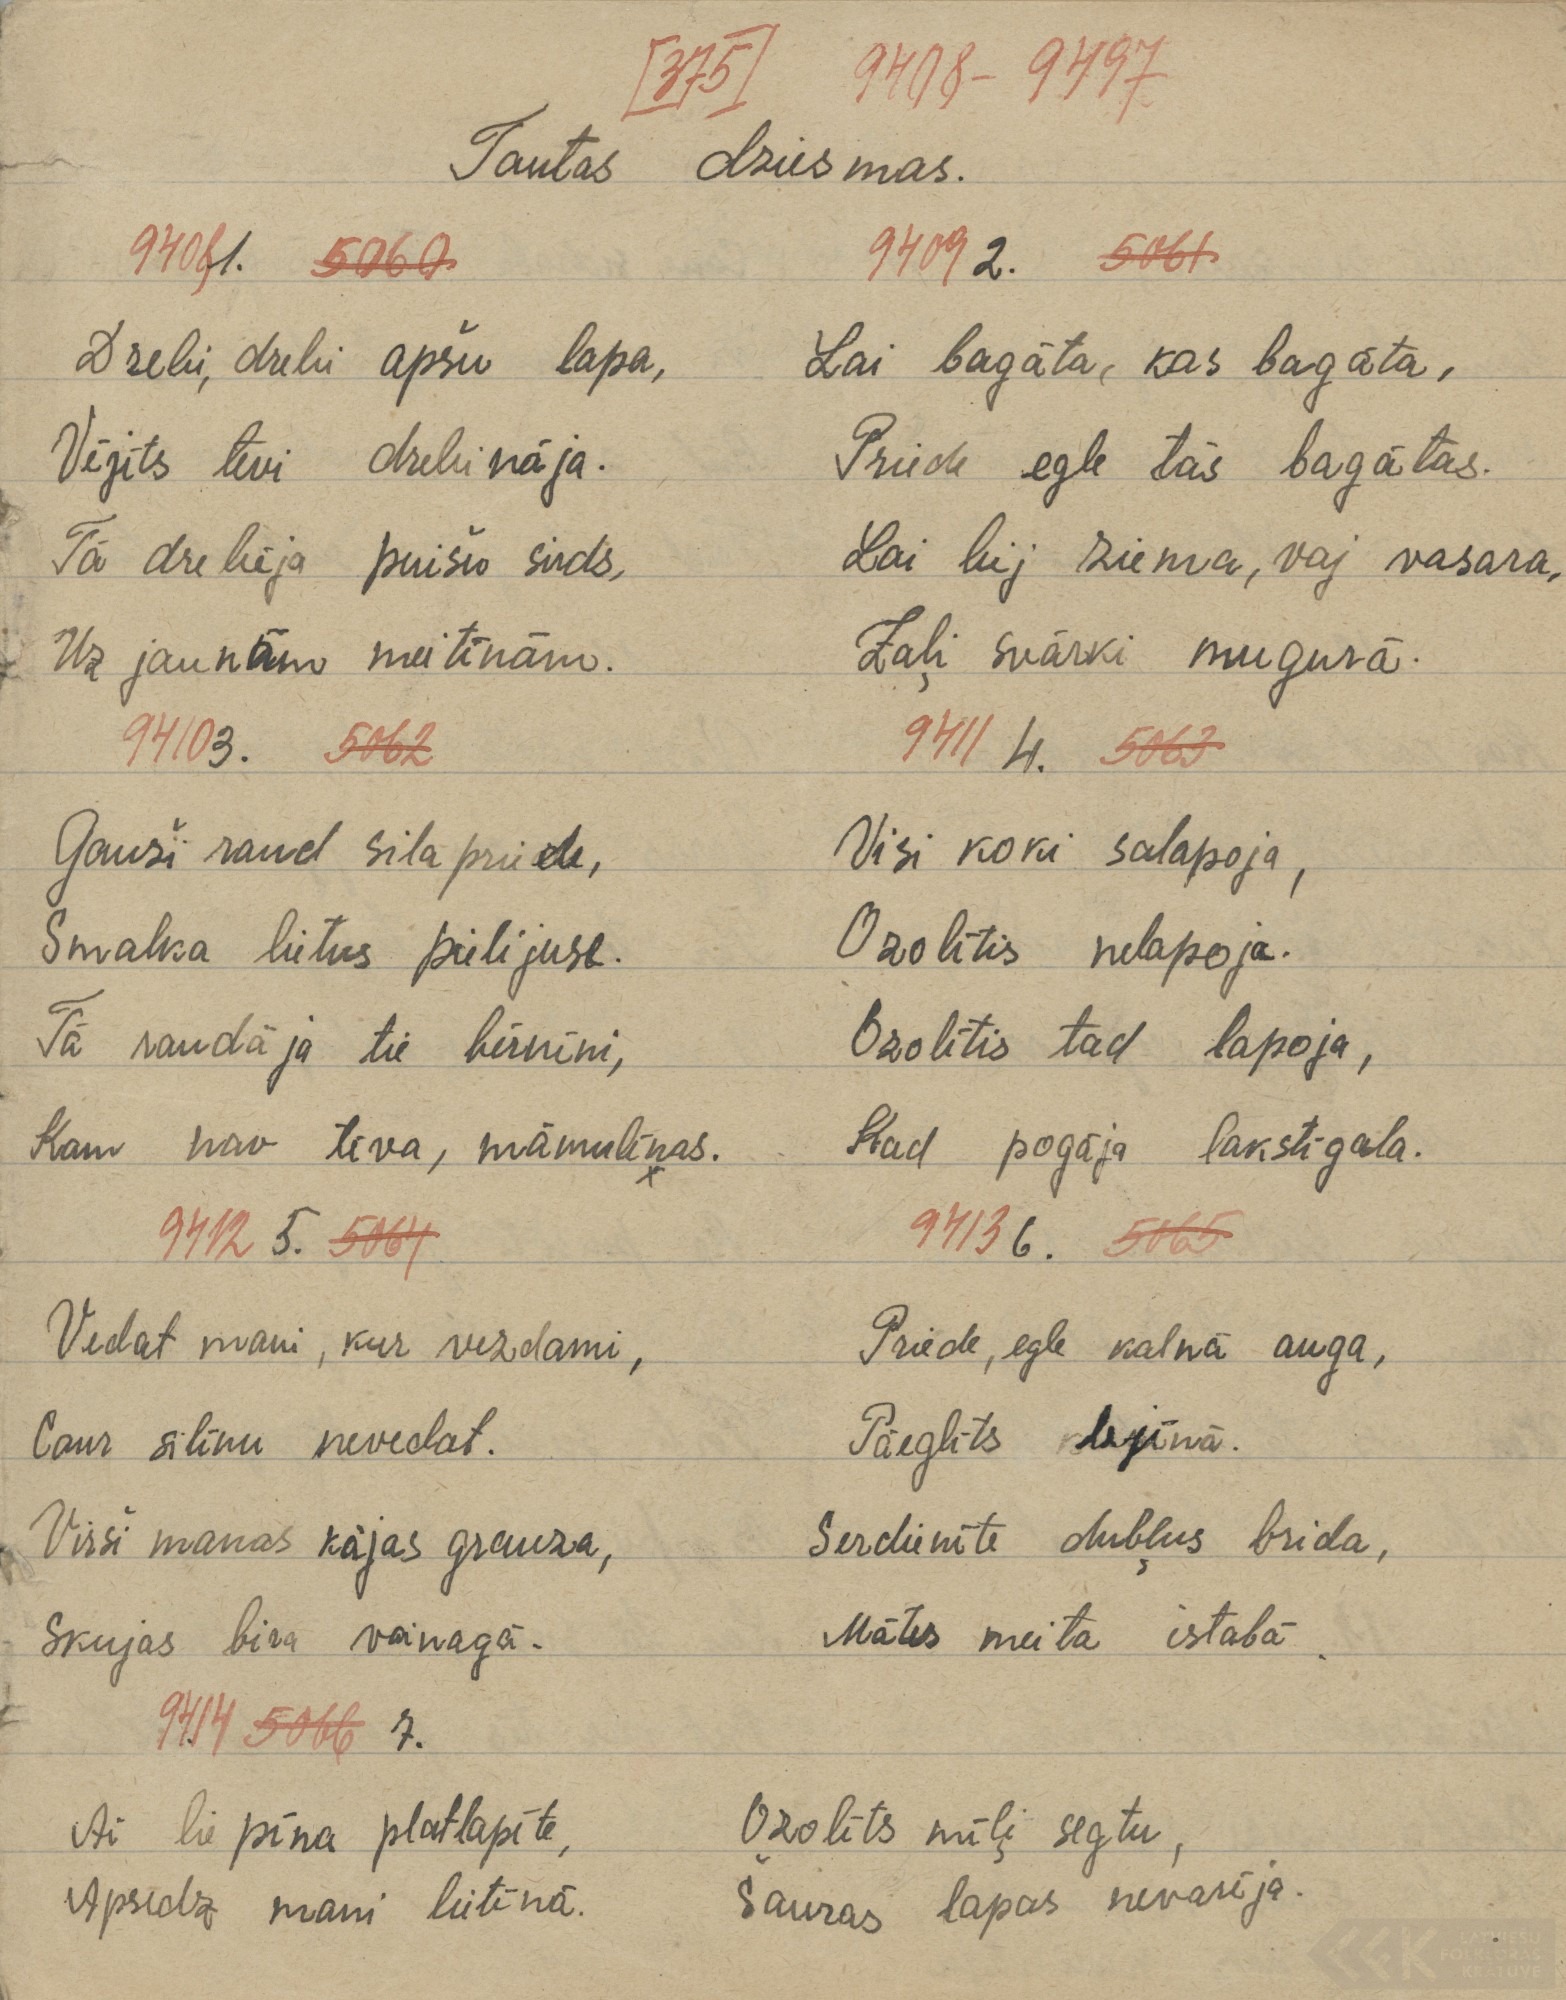 [375] 9408-9497
Tautas dziesmas.
9408 1. 5060
Drebi, drebi apšu lapa,
Vējīts tevi drebināja.
Tā drebēja puišu sirds,
Uz jaunām meitīnām.
9409 2. 5061
Lai bagāta, kas bagāta,
Priede egle tās bagātas.
Lai bij ziema, vaj vasara,
Zaļi svārki mugurā.
9410 3. 5062
Gauši raud sila priede,
Smalka lietus pielijuse.
Tā raudāja tie bērnīni,
Kam nav tēva, māmulīņas.
9411 4. 5063
Visi koki salapoja,
Ozolītis nelapoja.
Ozolītis tad lapoja,
Kad pogāja lakstīgala.
9412 5. 5064
Vedat mani, kur vezdami,
Caur silīnu nevedat.
Virši manas kājas grauza,
Skujas bira vainagā.
9413 6. 5065
Priede, egle kalnā auga,
Pāeglīts lejīnā.
Serdienīte dubļus brida,
Mātes meita istabā.
9414 5066 7.
Ai liepīna platlapīte,
Apsedz mani lietīnā.
Ozolīts mīļi segtu,
Šauras lapas nevarēja.
LATVIEŠU
FOLKLORAS
KRĀTUVE